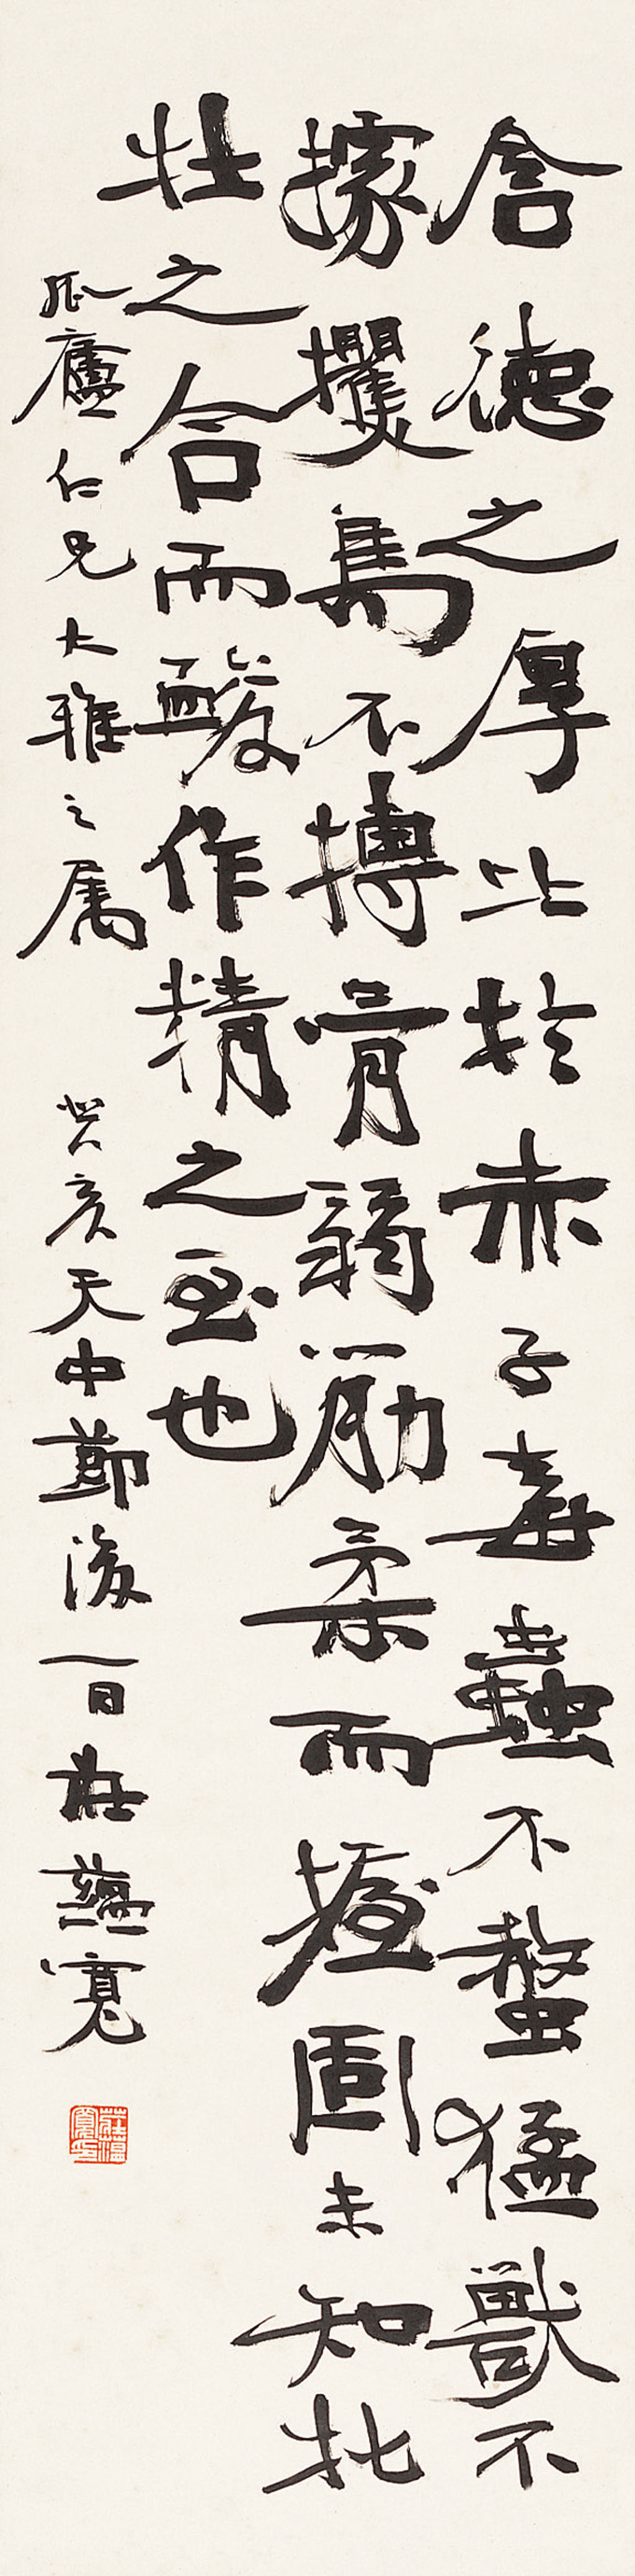 含德之厚比於赤子毒蟲不螫猛獸不
據攫鳥不搏骨弱筋柔而握固未知牝
牡之合而䘒作精之至也
廬仁兄大雅之屬 癸亥天中節後一日莊蘊寬